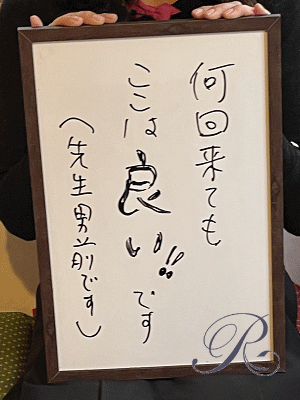 何回来ても
ここは良い!!です
(先生男前です)
R